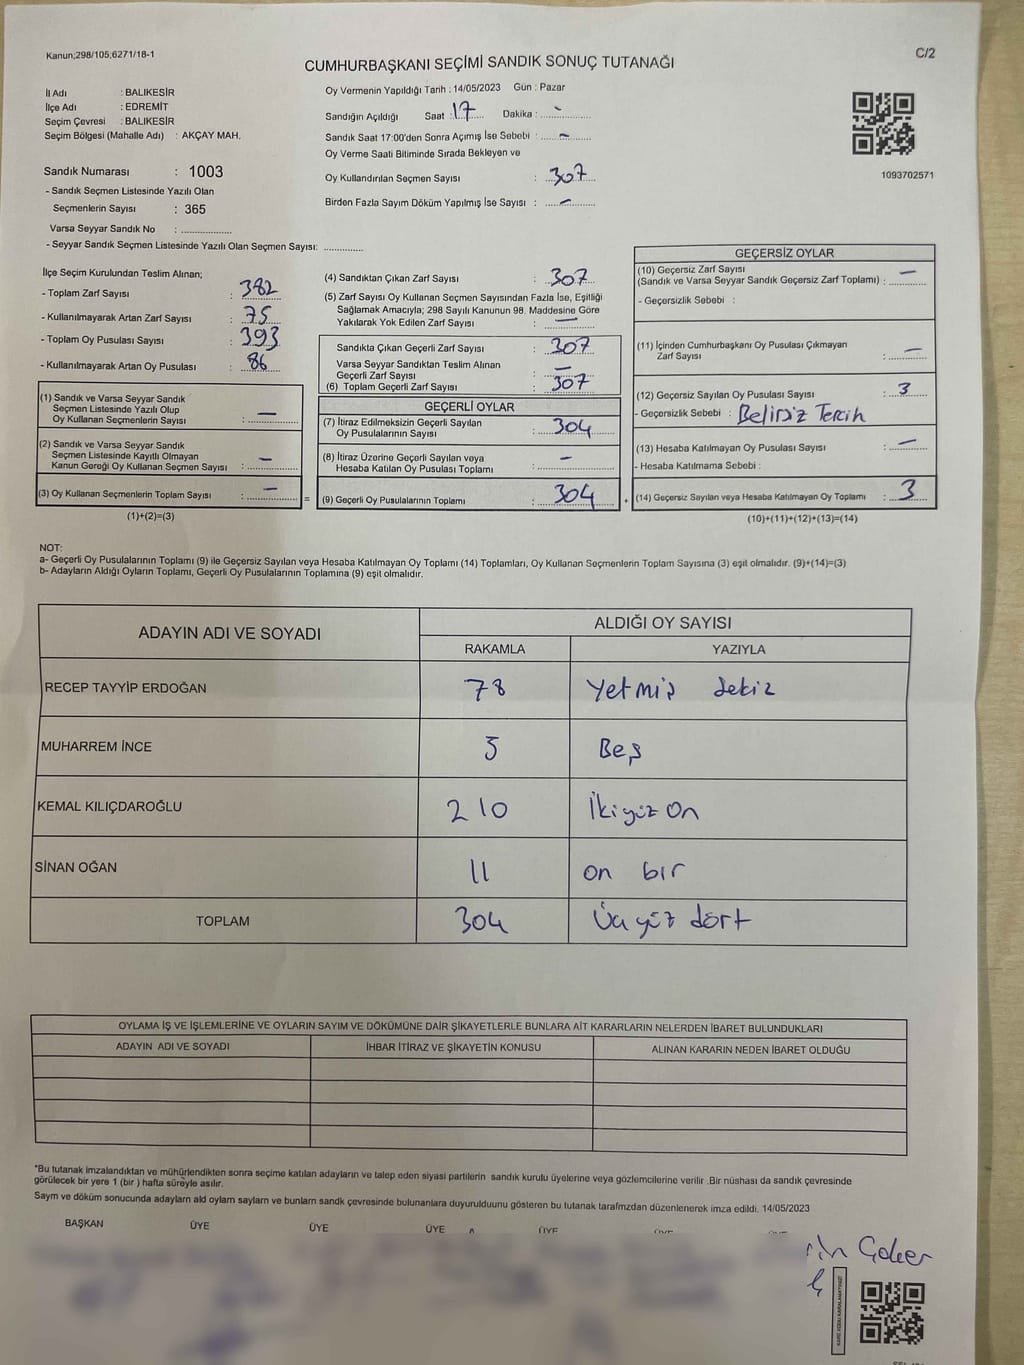 Kanun;298/105;6271/18-1
C/2
CUMHURBAŞKANI SEÇİMİ SANDIK SONUÇ TUTANAĞI
İl Adı : BALIKESİR
İlçe Adı : EDREMİT
Seçim Çevresi : BALIKESİR
Seçim Bölgesi (Mahalle Adı) : AKÇAY MAH.
Sandık Numarası : 1003
- Sandık Seçmen Listesinde Yazılı Olan
Seçmenlerin Sayısı : 365
Varsa Seyyar Sandık No : ..................
- Seyyar Sandık Seçmen Listesinde Yazılı Olan Seçmen Sayısı: ..............
Oy Vermenin Yapıldığı Tarih : 14/05/2023 Gün : Pazar
Sandığın Açıldığı Saat : 17 Dakika : -
Sandık Saat 17:00'den Sonra Açımış İse Sebebi : -
Oy Verme Saati Bitiminde Sırada Bekleyen ve
Oy Kullandırılan Seçmen Sayısı : 307
Birden Fazla Sayım Döküm Yapılmış İse Sayısı : -
1093702571
İlçe Seçim Kurulundan Teslim Alınan;
- Toplam Zarf Sayısı : 382
- Kullanılmayarak Artan Zarf Sayısı : 75
- Toplam Oy Pusulası Sayısı : 393
- Kullanılmayarak Artan Oy Pusulası : 86
(1) Sandık ve Varsa Seyyar Sandık
Seçmen Listesinde Yazılı Olup
Oy Kullanan Seçmenlerin Sayısı : -
(2) Sandık ve Varsa Seyyar Sandık
Seçmen Listesinde Kayıtlı Olmayan
Kanun Gereği Oy Kullanan Seçmen Sayısı : -
(3) Oy Kullanan Seçmenlerin Toplam Sayısı : -
(1)+(2)=(3)
(4) Sandıktan Çıkan Zarf Sayısı : 307
(5) Zarf Sayısı Oy Kullanan Seçmen Sayısından Fazla İse, Eşitliği
Sağlamak Amacıyla; 298 Sayılı Kanunun 98. Maddesine Göre
Yakılarak Yok Edilen Zarf Sayısı : -
Sandıkta Çıkan Geçerli Zarf Sayısı : 307
Varsa Seyyar Sandıktan Teslim Alınan
Geçerli Zarf Sayısı : -
(6) Toplam Geçerli Zarf Sayısı : 307
GEÇERLİ OYLAR
(7) İtiraz Edilmeksizin Geçerli Sayılan
Oy Pusulalarının Sayısı : 304
(8) İtiraz Üzerine Geçerli Sayılan veya
Hesaba Katılan Oy Pusulası Toplamı : -
= (9) Geçerli Oy Pusulalarının Toplamı : 304
GEÇERSİZ OYLAR
(10) Geçersiz Zarf Sayısı
(Sandık ve Varsa Seyyar Sandık Geçersiz Zarf Toplamı) : -
- Geçersizlik Sebebi :
(11) İçinden Cumhurbaşkanı Oy Pusulası Çıkmayan
Zarf Sayısı : -
(12) Geçersiz Sayılan Oy Pusulası Sayısı : 3
- Geçersizlik Sebebi : Belirsiz Tercih
(13) Hesaba Katılmayan Oy Pusulası Sayısı : -
- Hesaba Katılmama Sebebi :
+ (14) Geçersiz Sayılan veya Hesaba Katılmayan Oy Toplamı : 3
(10)+(11)+(12)+(13)=(14)
NOT:
a- Geçerli Oy Pusulalarının Toplamı (9) ile Geçersiz Sayılan veya Hesaba Katılmayan Oy Toplamı (14) Toplamları, Oy Kullanan Seçmenlerin Toplam Sayısına (3) eşit olmalıdır. (9)+(14)=(3)
b- Adayların Aldığı Oyların Toplamı, Geçerli Oy Pusulalarının Toplamına (9) eşit olmalıdır.
ADAYIN ADI VE SOYADI ALDIĞI OY SAYISI
RAKAMLA YAZIYLA
RECEP TAYYİP ERDOĞAN 78 Yetmiş sekiz
MUHARREM İNCE 5 Beş
KEMAL KILIÇDAROĞLU 210 İkiyüz On
SİNAN OĞAN 11 on bir
TOPLAM 304 Üçyüz dört
OYLAMA İŞ VE İŞLEMLERİNE VE OYLARIN SAYIM VE DÖKÜMÜNE DAİR ŞİKAYETLERLE BUNLARA AİT KARARLARIN NELERDEN İBARET BULUNDUKLARI
ADAYIN ADI VE SOYADI İHBAR İTİRAZ VE ŞİKAYETİN KONUSU ALINAN KARARIN NEDEN İBARET OLDUĞU
*Bu tutanak imzalandıktan ve mühürlendikten sonra seçime katılan adayların ve talep eden siyasi partilerin sandık kurulu üyelerine veya gözlemcilerine verilir .Bir nüshası da sandık çevresinde
görülecek bir yere 1 (bir ) hafta süreyle asılır.
Sayım ve döküm sonucunda adaylarn ald oylarn saylarn ve bunlarn sandk çevresinde bulunanlara duyurulduunu gösteren bu tutanak tarafmzdan düzenlenerek imza edildi. 14/05/2023
BAŞKAN ÜYE ÜYE ÜYE ÜYE